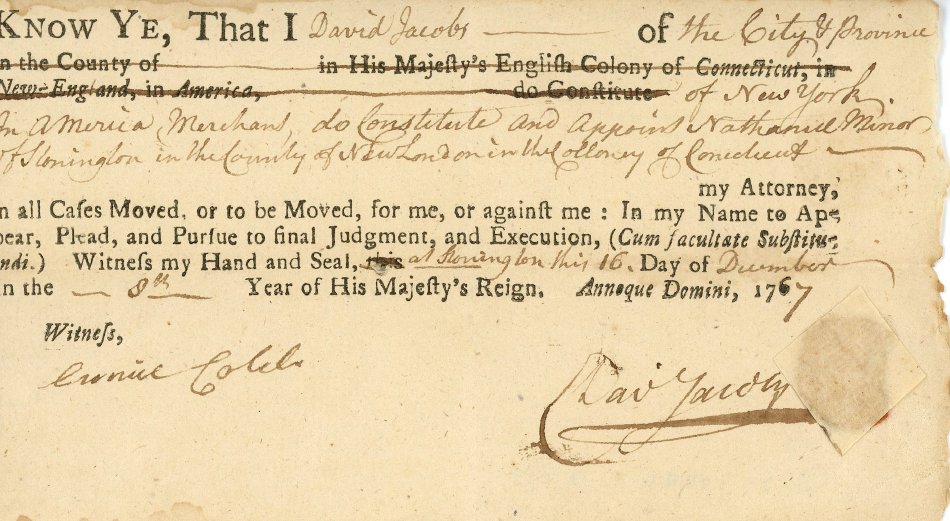 KNOW YE, That I David Jacobs of the City & Province
in the County of in His Majeſty's Engliſh Colony of Connecticut, in
New-England, in America, do Conſtitute of New York
In America, Merchant, do Constitute and Appoint Nathaniel Minor
of Stonington in the County of New London in the Colloney of Conecticut
my Attorney,
in all Caſes Moved, or to be Moved, for me, or againſt me : In my Name to Ap-
pear, Plead, and Purſue to final Judgment, and Execution, (Cum facultate Subſtitu-
endi.) Witneſs my Hand and Seal, this at Stonington this 16. Day of December
in the 8th Year of His Majeſty's Reign. Annoque Domini, 1767
Witneſs,
David Jacobs